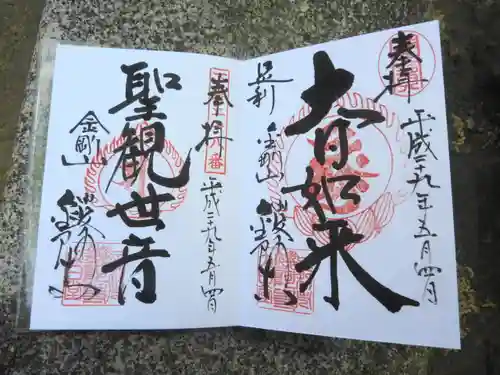 奉拝
平成二十九年五月四日
大日如来
足利
金剛山
奉拝
平成二十九年五月四日
聖観世音
金剛山